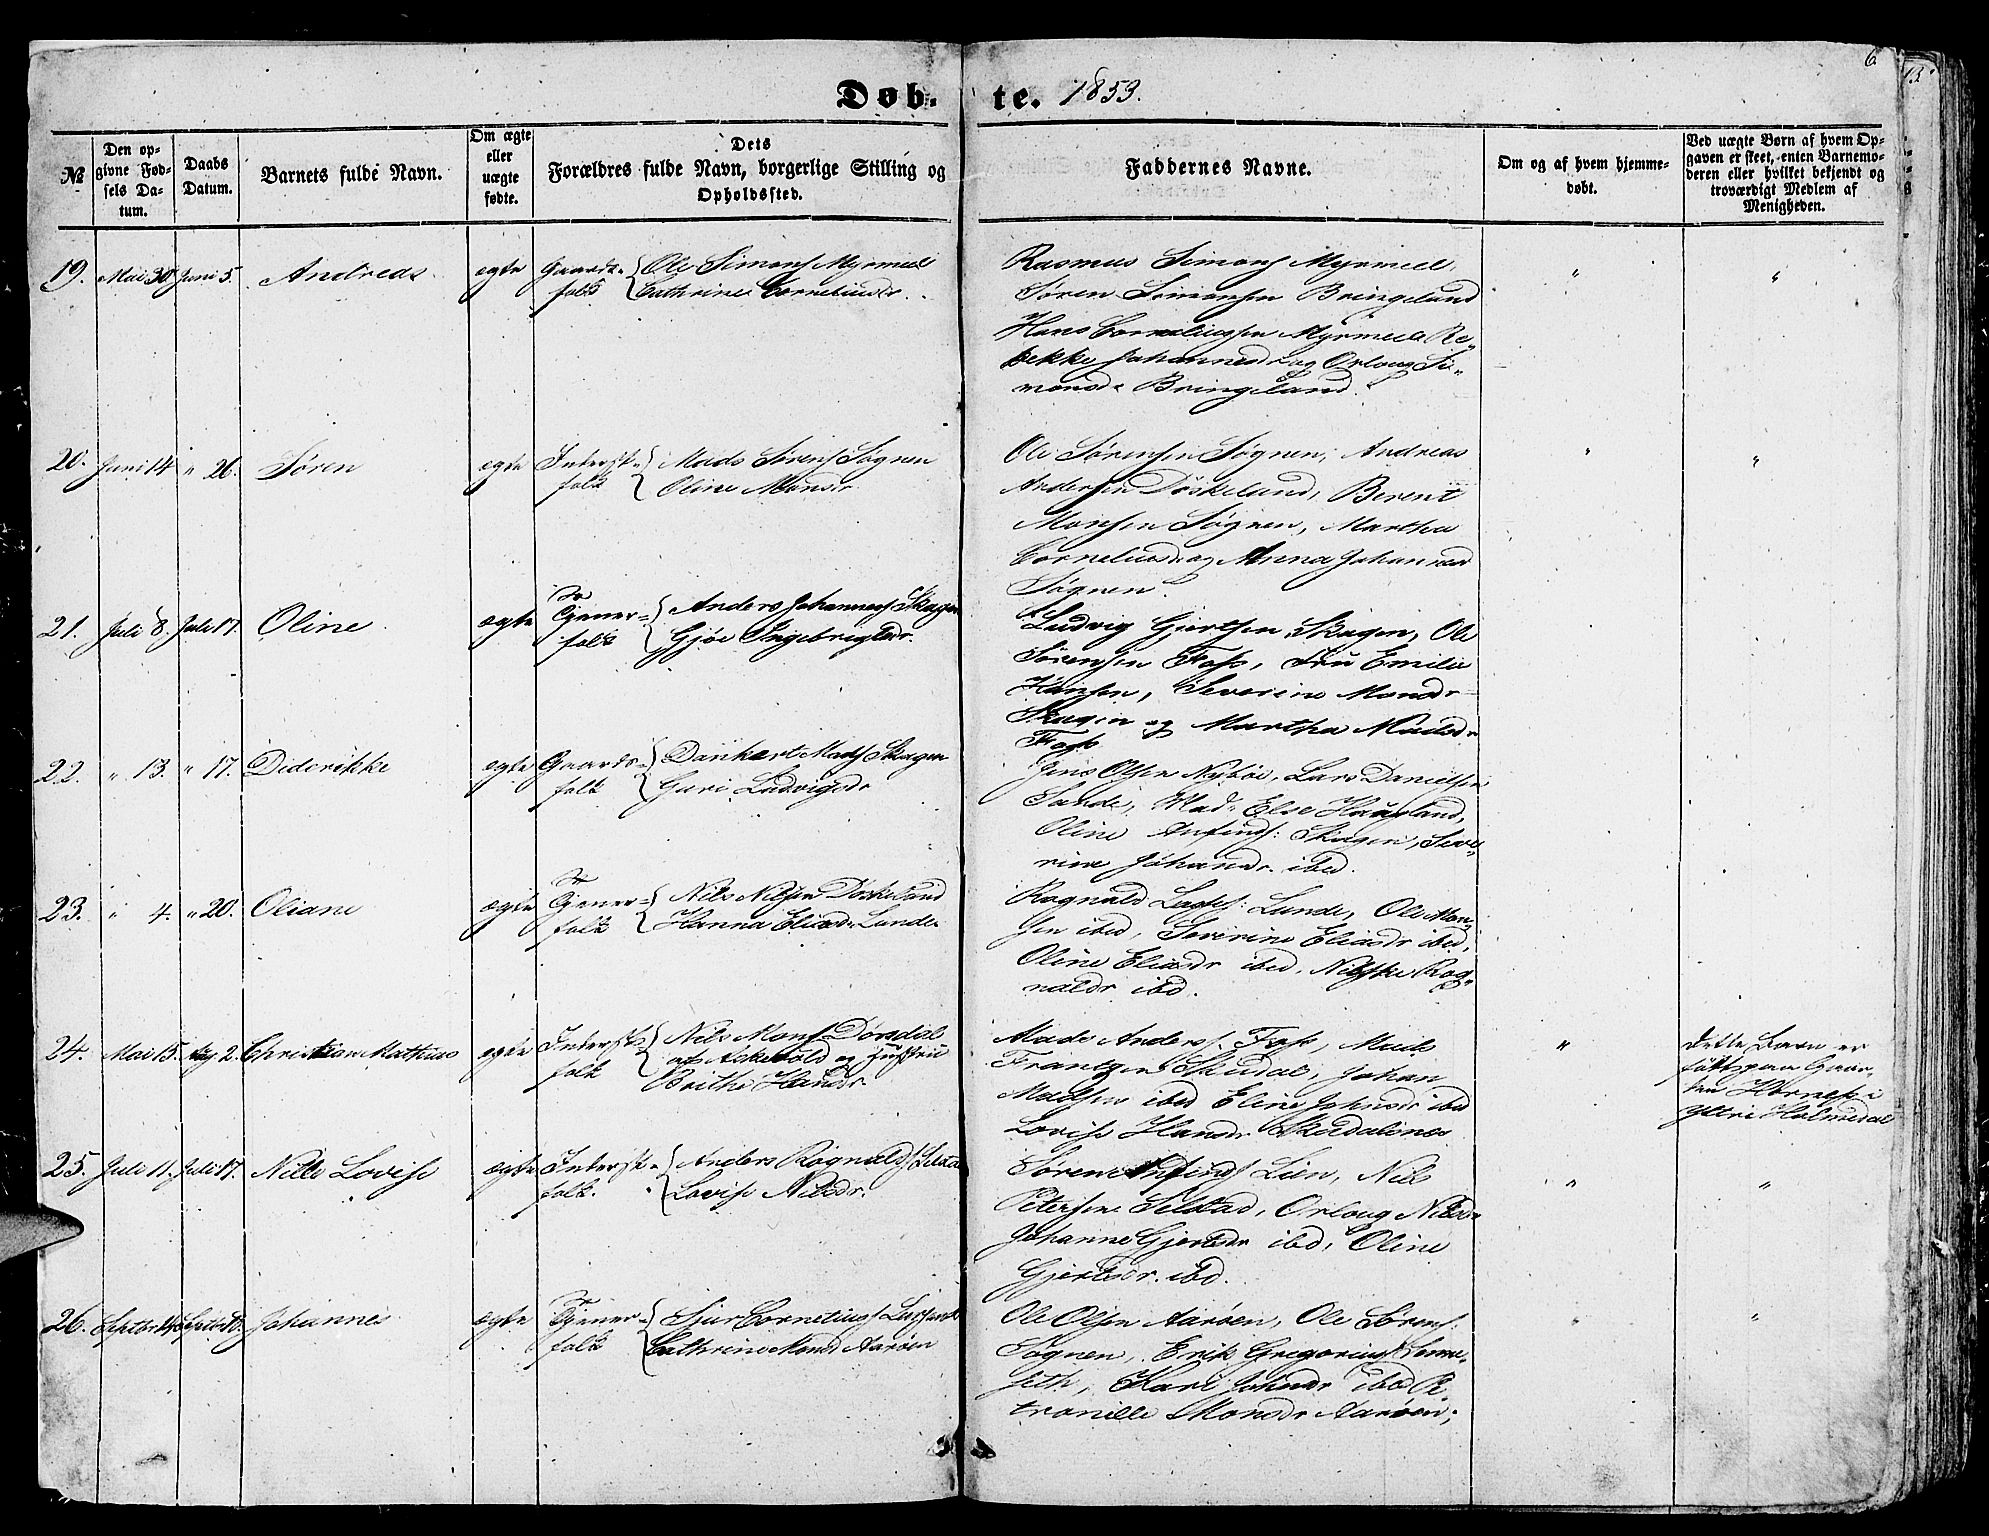 6
13
Døb-te. 1853.
№
Den op-
givne Fød-
sels Da-
tum.
Daabs
Datum.
Barnets fulde Navn.
Om ægte
eller
uægte
fødte.
Dets
Forældres fulde Navn, borgerlige Stilling og
Opholdssted.
Faddernes Navne.
Om og af hvem hjemme-
døbt.
Ved uægte Børn af hvem Op-
gaven er skeet, enten Barnemo-
deren eller hvilket bekjendt og
troværdigt Medlem af
Menigheden.
19. Mai 30 Juni 5. Andreas. ægte Gaards- Ole Simons Myrmel
folk Cathrine Corneliusdr.
Rasmus Simons Myrmel,
Søren Simonsen Bringeland
Hans Corneliussen Myrmel Re-
bekke Johannesdr og Orloug Si-
monsdr Bringeland.
" "
20. Juni 14 " 26. Søren ægte Inderst- Mads Sørens Søgnen
folk Oline Monsdr.
Ole Sørensen Søgnen, Andreas
Andersen Døskeland, Berent
Monsen Søgnen, Martha
Corneliusdr og Anna Johannesd
Søgnen.
" "
21. Juli 8. Juli 17. Oline ægte Tjener- Anders Johanness Skagen
folk Gjøe Ingebrigtsdr.
Ludvig Giertsen Skagen, Ole
Sørensen Foss, Fru Emilie
Hansen, Severine Monsdr
Skagen og Martha Madsdr
Foss
22. " 13. " 17. Diderikke ægte Gaards- Dankert Mads Skagen
folk Guri Ludvigsdr
Jens Olsen Nybøe, Lars Danielsen
Sande, Mad. Else Haugland,
Oline Anfinds: Skagen, Seve-
rine Johansdr. ibd.
23. " 4. " 20. Oliane ægte Tjener- Nils Nilsen Døskeland
folk Hanna Eliasdr Lunde
Ragnald Lasses: Lunde, Ole Mon-
sen ibd, Severine Eliasdr ibd,
Oline Eliasdr ibd, Nilske Rag-
naldr ibd.
24. Mai 15. Aug 2. Christian Mathias ægte Inderst- Nils Mons Dørsdal
folk af Askevold og Hustru
Brithe Hansdr.
Mads Anders. Foss, Mads
Frantzen Skeidal, Johan
Madsen ibd Eline Johnsdr ibd
Lovise Hansdr
"
Dette Barn er
født paa Gaar-
den Hornes i
Yttre Holmedal
25. Juli 11. Juli 17. Nille Lovise ægte Inderst- Anders Ragnalds Selsta
folk. Lovise Nilsdr.
Søren Anfinds Lien, Nils
Petersen Selstad, Orloug Nilsdr
Johanne Gjertsdr ibd, Oline
Gjertsdr. ibd.
" "
26. Septbr Septbr Johannes ægte Tjener- Sjur Cornelius
folk Cathrine Monsd Aarøen
Ole Olsen Aarøen, Ole Sørens:
Søgnen, Erik Gregorius
seth, Kari Johnsdr ibd Pe-
tronille Monsdr Aarøen;
" "